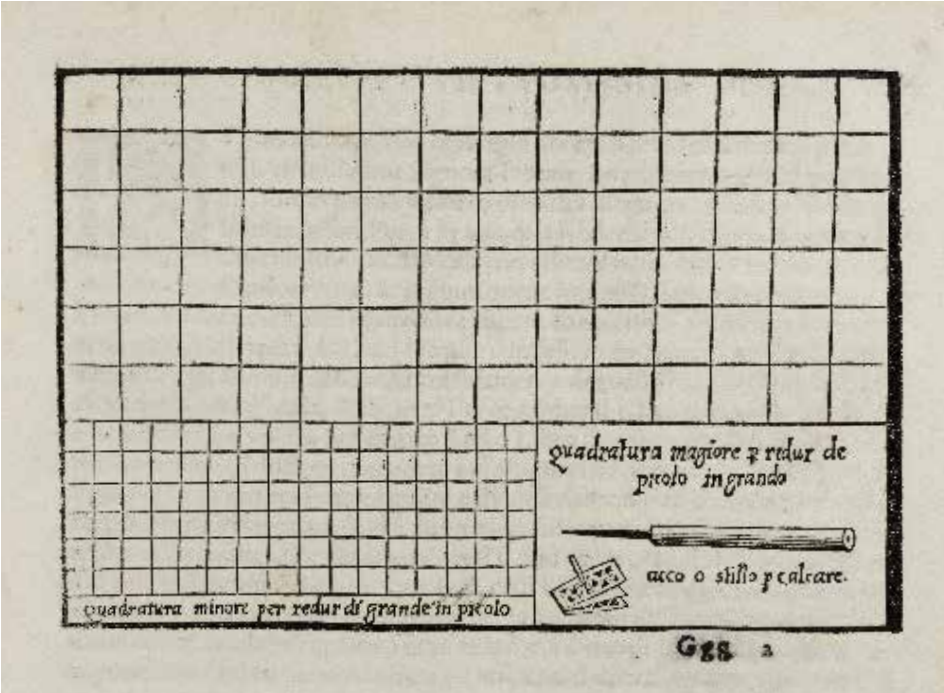 quadratura magiore ꝑ redur de
picolo in grando
acco o stillo p calcare.
quadratura minore per redur di grande in picolo
Ggg 2